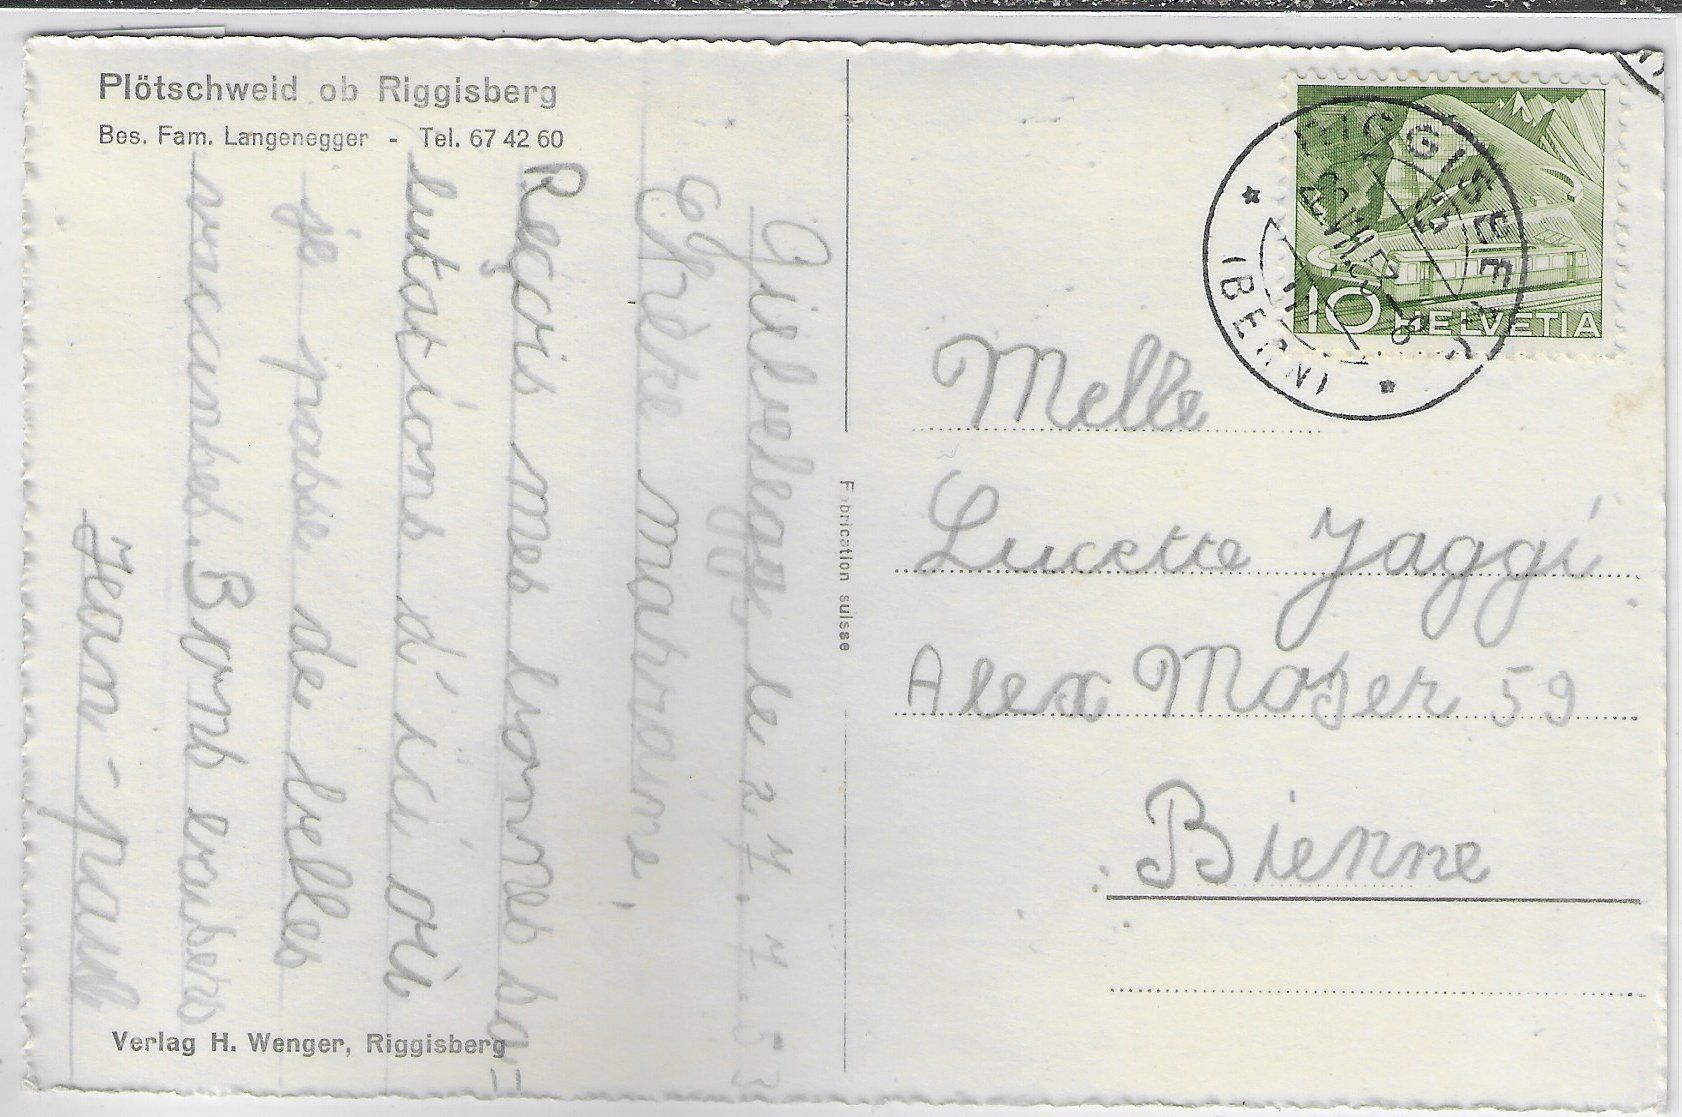 Plötschweid ob Riggisberg
Bes. Fam. Langenegger - Tel. 67 42 60
le 27. 7. 53
Chère marraine,
Reçois mes bonnes sa=
lutations d'ici où
je passe de belles
vacances. Bons baisers
Jean-paul
Verlag H. Wenger, Riggisberg
Fabrication suisse
HELVETIA
10
RIGGISBERG
(BERN)
Melle
Lucette Jaggi
Alex Moser 59
Bienne